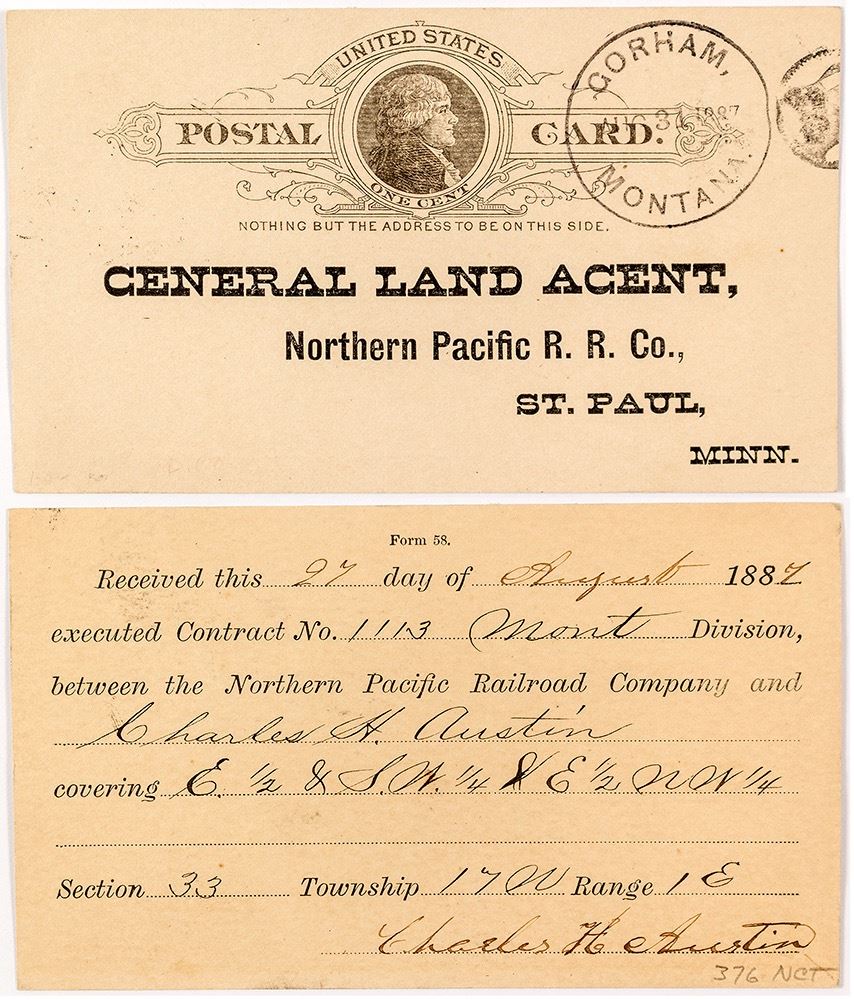 UNITED STATES
POSTAL CARD.
ONE CENT
NOTHING BUT THE ADDRESS TO BE ON THIS SIDE.
GORHAM,
AUG 31 1887
MONTANA.
GENERAL LAND AGENT,
Northern Pacific R. R. Co.,
ST. PAUL,
MINN.
Form 58.
Received this 27 day of August 1887
executed Contract No. 1113 Mont Division,
between the Northern Pacific Railroad Company and
Charles H. Austin
covering E. 1/2 & S.W. 1/4 & E 1/2 NW 1/4
Section 33 Township 17 N Range 1 E
Charles H Austin
376 NCT